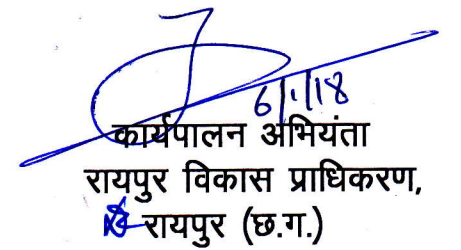 6/1/18
कार्यपालन अभियंता
रायपुर विकास प्राधिकरण,
रायपुर (छ.ग.)